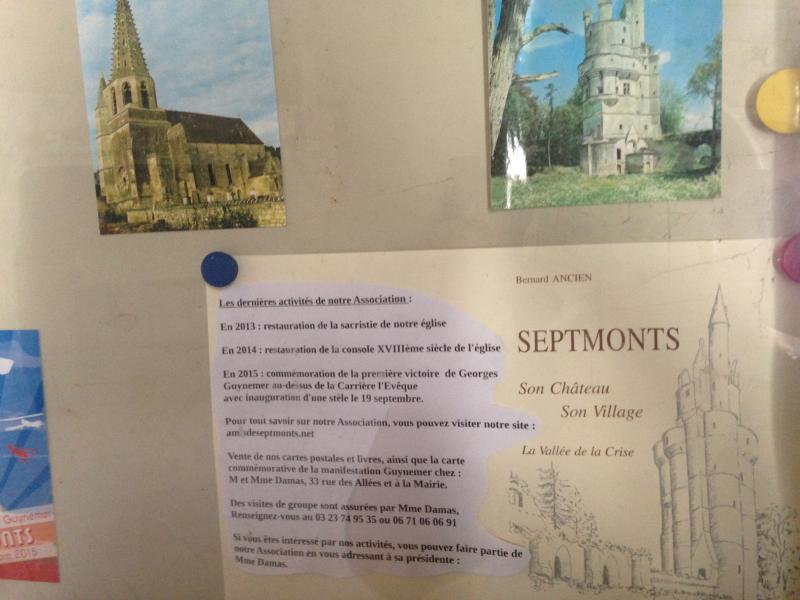 Les dernières activités de notre Association :
En 2013 : restauration de la sacristie de notre église
En 2014 : restauration de la console XVIIIème siècle de l'église
En 2015 : commémoration de la première victoire de Georges
Guynemer au-dessus de la Carrière l'Evêque
avec inauguration d'une stèle le 19 septembre.
Pour tout savoir sur notre Association, vous pouvez visiter notre site :
amisdeseptmonts.net
Vente de nos cartes postales et livres, ainsi que la carte
commémorative de la manifestation Guynemer chez :
M et Mme Damas, 33 rue des Allées et à la Mairie.
Des visites de groupe sont assurées par Mme Damas,
Renseignez-vous au 03 23 74 95 35 ou 06 71 06 06 91
Si vous êtes intéressé par nos activités, vous pouvez faire partie de
notre Association en vous adressant à sa présidente :
Mme Damas.
Bernard ANCIEN
SEPTMONTS
Son Château
Son Village
La Vallée de la Crise
Guynemer
NTS
2015